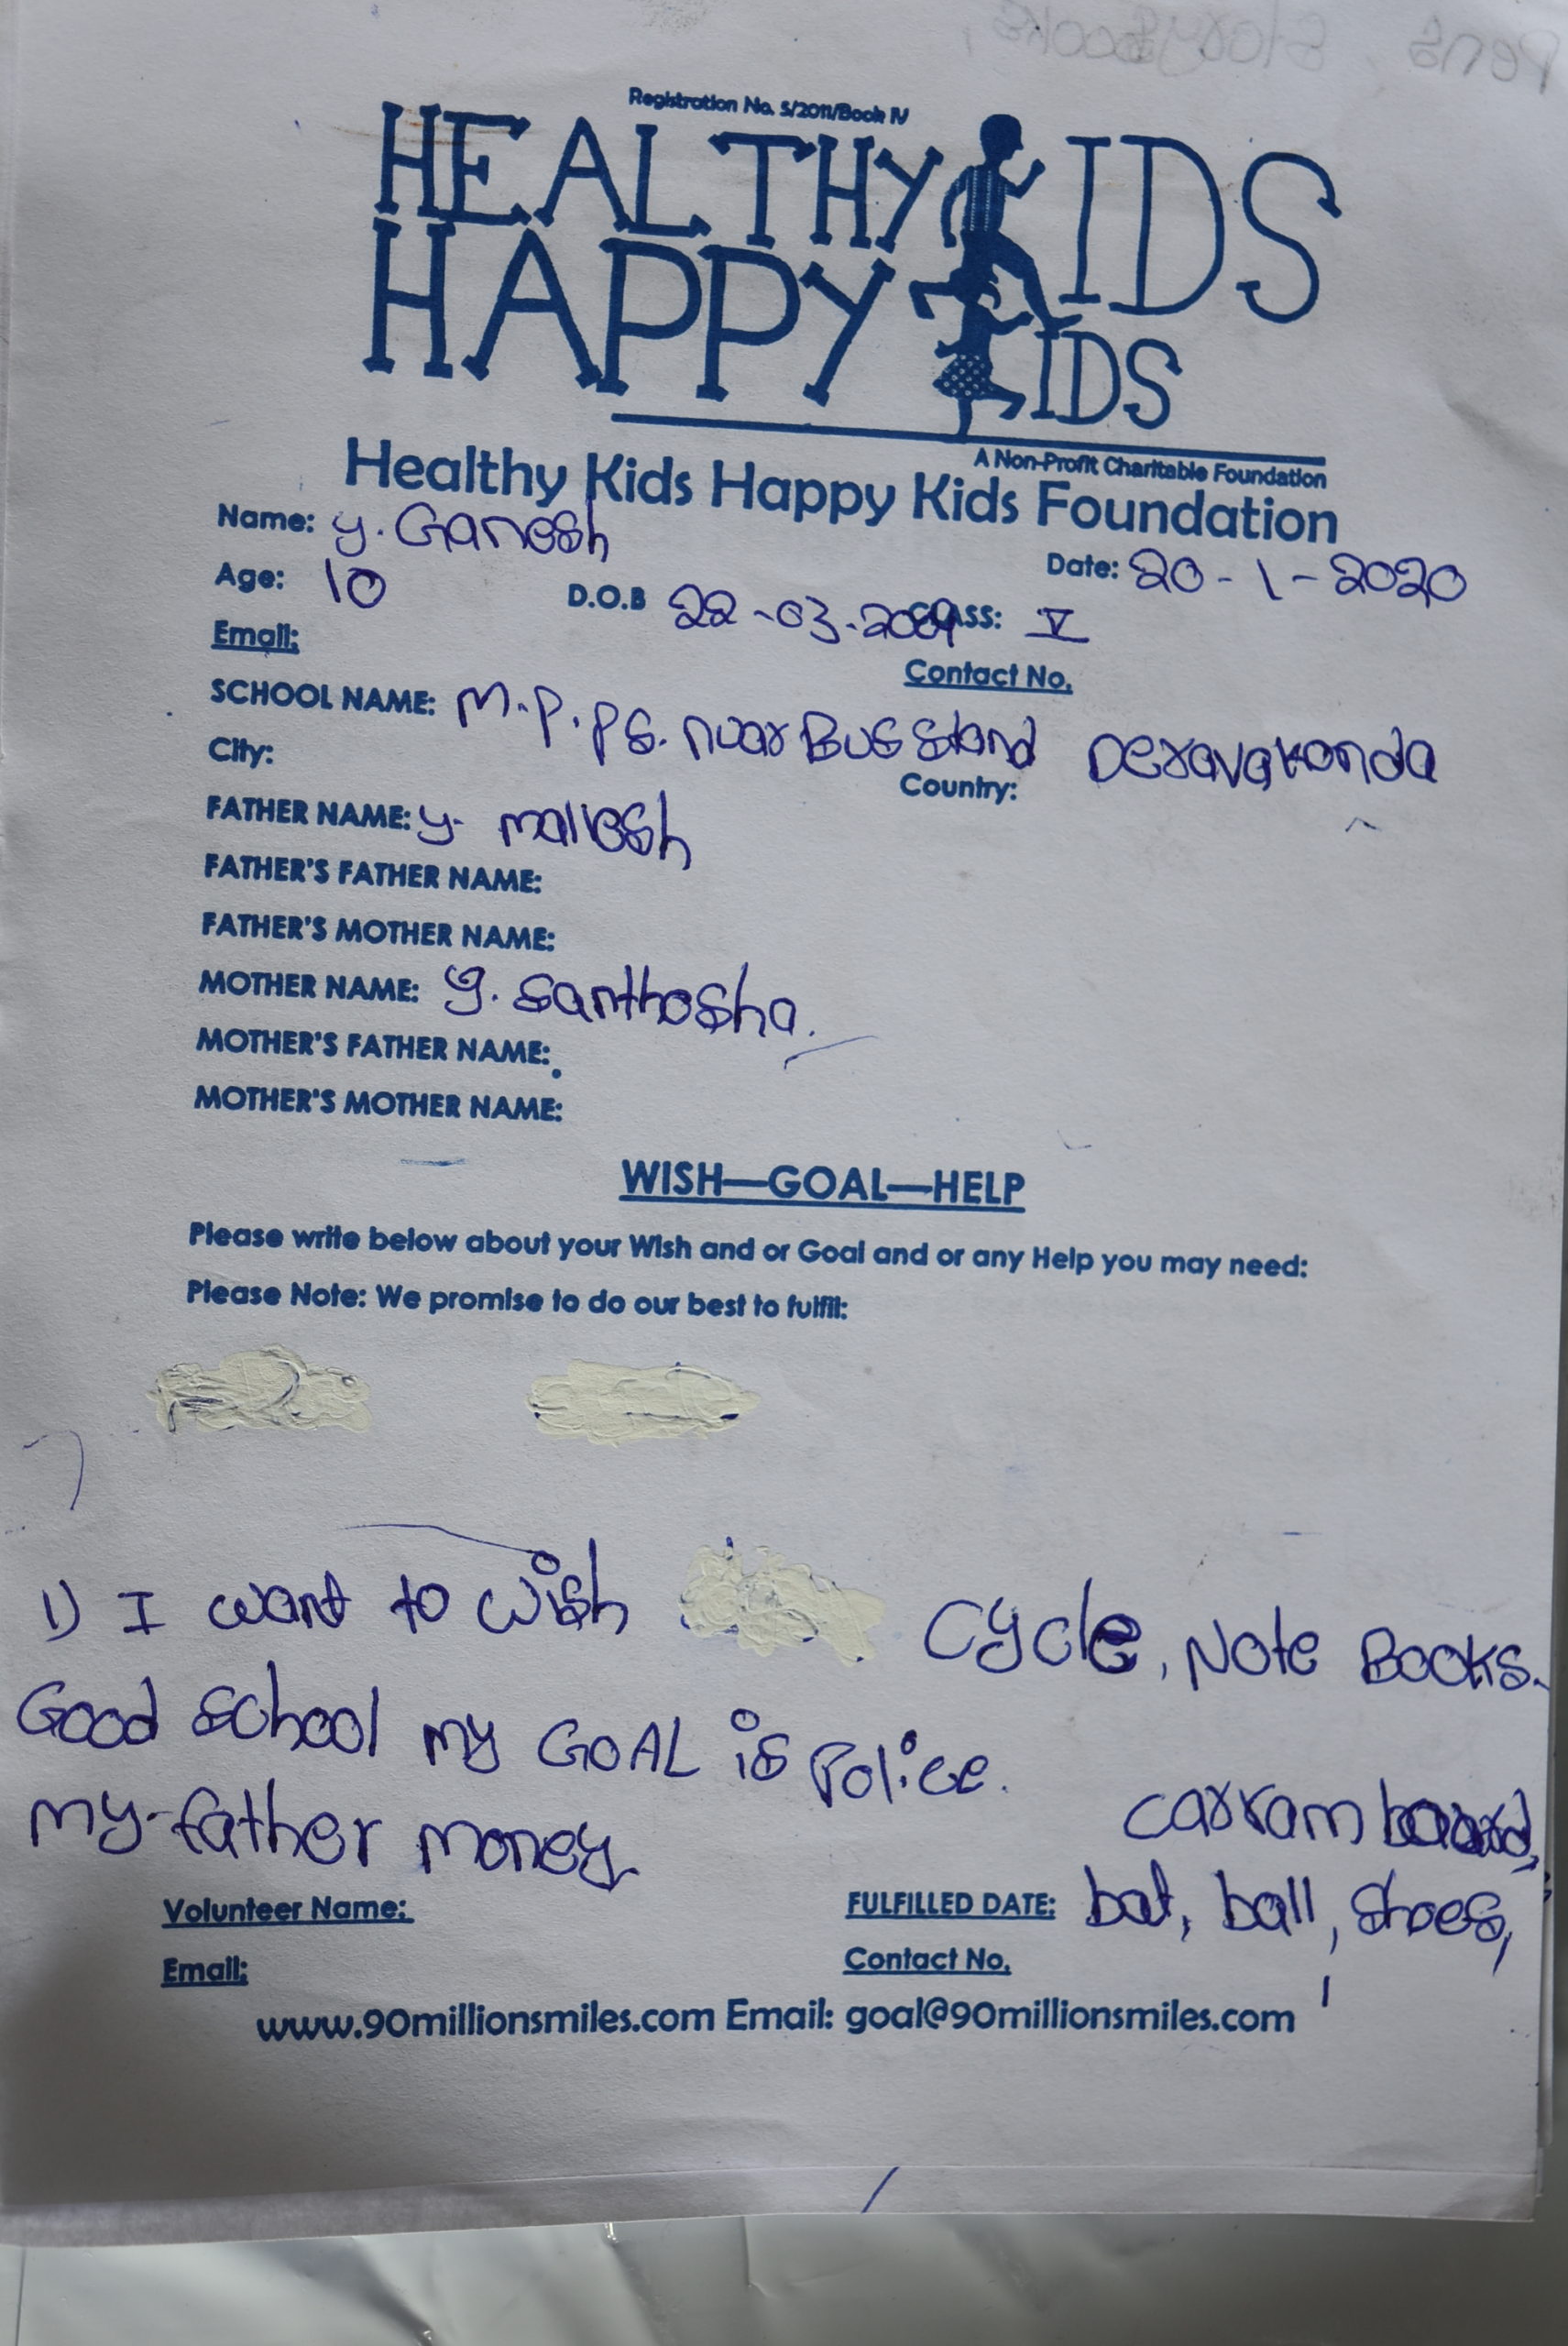 Pens, Story Books,
Registration No. 5/2011/Book IV
HEALTHY KIDS
HAPPY KIDS
A Non-Profit Charitable Foundation
Healthy Kids Happy Kids Foundation
Name: y. Ganesh
Date: 20-1-2020
Age: 10 D.O.B 22-03-2009 CLASS: V
Email:
Contact No.
SCHOOL NAME: M.P.P.S. near Bus Stand Deravakonda
City: Country:
FATHER NAME: y. mallesh
FATHER'S FATHER NAME:
FATHER'S MOTHER NAME:
MOTHER NAME: y. santhosha.
MOTHER'S FATHER NAME:
MOTHER'S MOTHER NAME:
WISH—GOAL—HELP
Please write below about your Wish and or Goal and or any Help you may need:
Please Note: We promise to do our best to fulfil:
1) I want to wish Cycle, Note Books.
Good school my GOAL is Police.
my father money. carram board,
Volunteer Name: FULFILLED DATE: bat, ball, shoes,
Email: Contact No.
www.90millionsmiles.com Email: goal@90millionsmiles.com